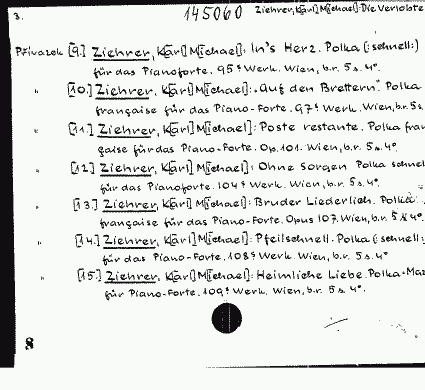 3. 145060 Ziehrer, K[arl] M[ichael]: Die Verlobte
Přívazek [9.] Ziehrer, K[arl] M[ichael]: In's Herz. Polka (: schnell :)
für das Pianoforte. 95ᵗ Werk. Wien, b.r. 5 s. 4°.
" [10.] Ziehrer, K[arl] M[ichael]: „Auf den Brettern." Polka
française für das Piano-Forte. 97ᵗ Werk. Wien, b.r. 5 s.
" [11.] Ziehrer, K[arl] M[ichael]: Poste restante. Polka fran
çaise für das Piano-Forte. Op. 101. Wien, b.r. 5 s. 4°.
" [12.] Ziehrer, K[arl] M[ichael]: Ohne Sorgen Polka schnel
für das Pianoforte. 104ᵗ Werk. Wien, b.r. 5 s. 4°.
" [13.] Ziehrer, K[arl] M[ichael]: Bruder Liederlich. Polka
française für das Piano-Forte. Opus 107. Wien, b.r. 5 s. 4°.
" [14.] Ziehrer, K[arl] M[ichael]: Pfeilschnell. Polka (: schnell :
für das Piano-Forte. 108ᵗ Werk. Wien, b.r. 5 s. 4°
" [15.] Ziehrer, K[arl] M[ichael]: Heimliche Liebe. Polka-Maz
für Piano-Forte. 109ᵗ Werk. Wien, b.r. 5 s. 4°.
8